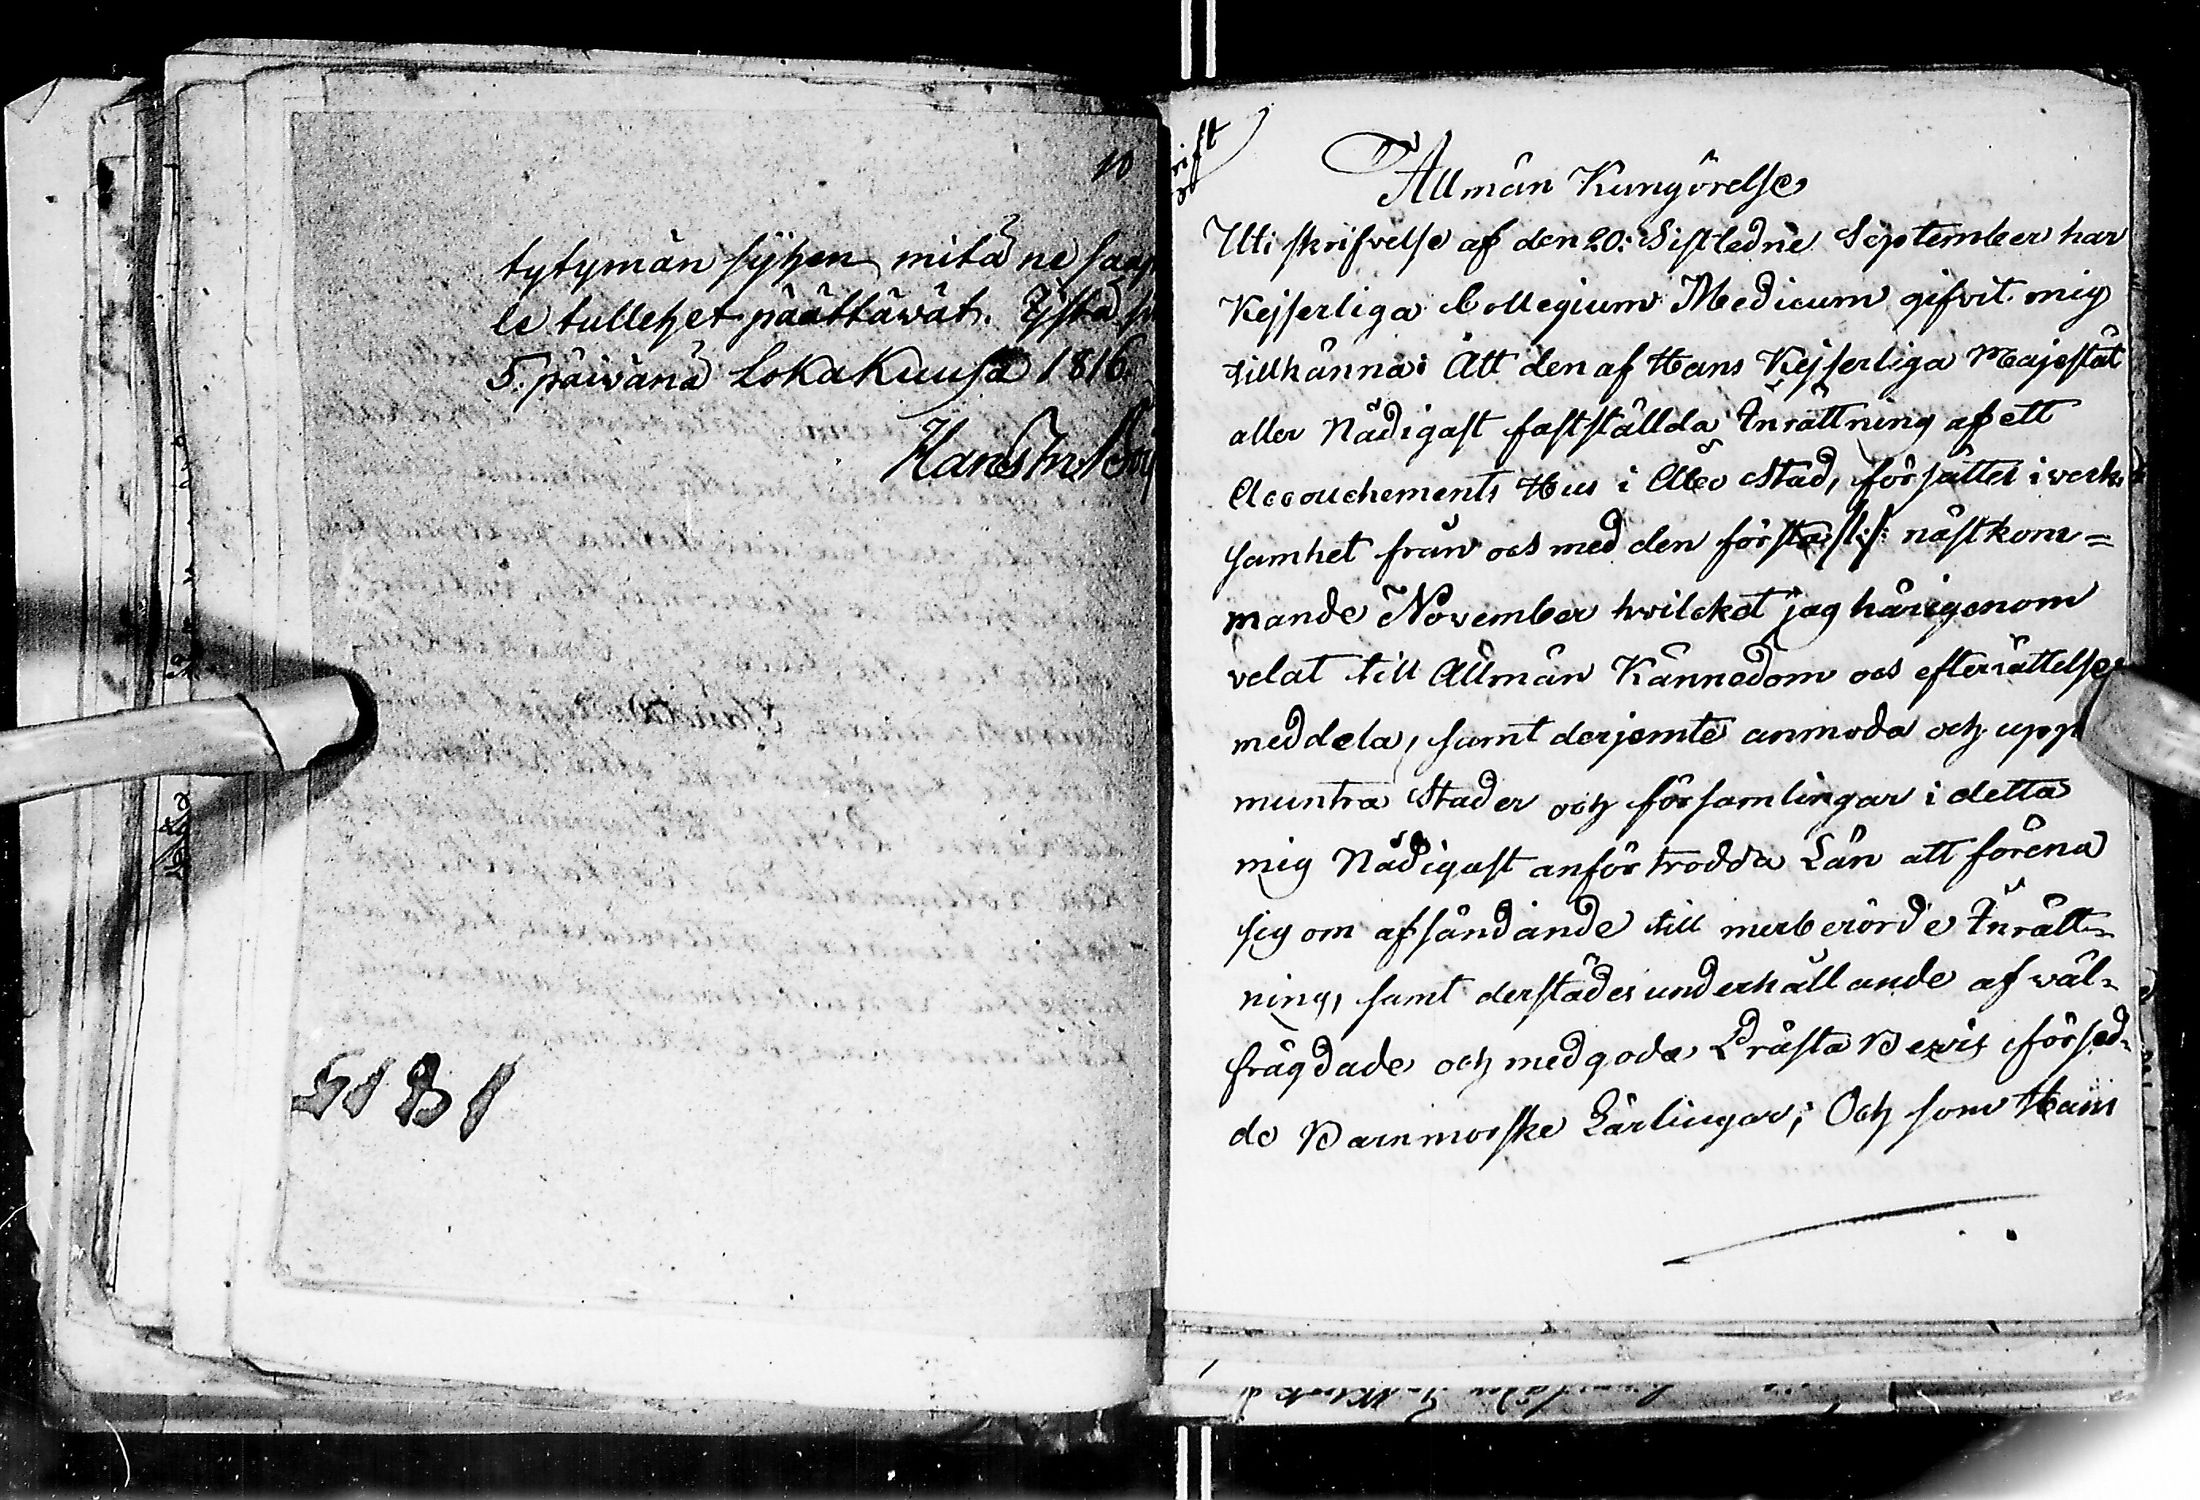 10
tytymän syhen mitä ne
le tullehet päättäwät.
5. päiwänä Lokakuusa 1816
5181
rift
Allmän Kungörelse
Uti skrifvelse af den 20: Sistledne September har
Kejserliga Collegium Medicum gifvit mig
tillkänna: Att den af Hans Kejserliga Majestät
aller Nådigast fastställda Inrättning af ett
Accouchements Hus i Åbo Stad, försättes i verk-
samhet från och med den första /:/: nästkom=
mande November hvilcket jag härigenom
velat till Allmän Kännedom och efterrättelse
meddela, samt derjemte anmoda och upp
muntra Städer och församlingar i detta
mig Nådigast anförtrodda Län att förena
sig om afsändande till merberörde Inrätt=
ning, samt derstädes underhållande af wäl=
frägdade och med goda Prästa Bewis försed=
de Barnmorske Lärlingar; Och som Hans